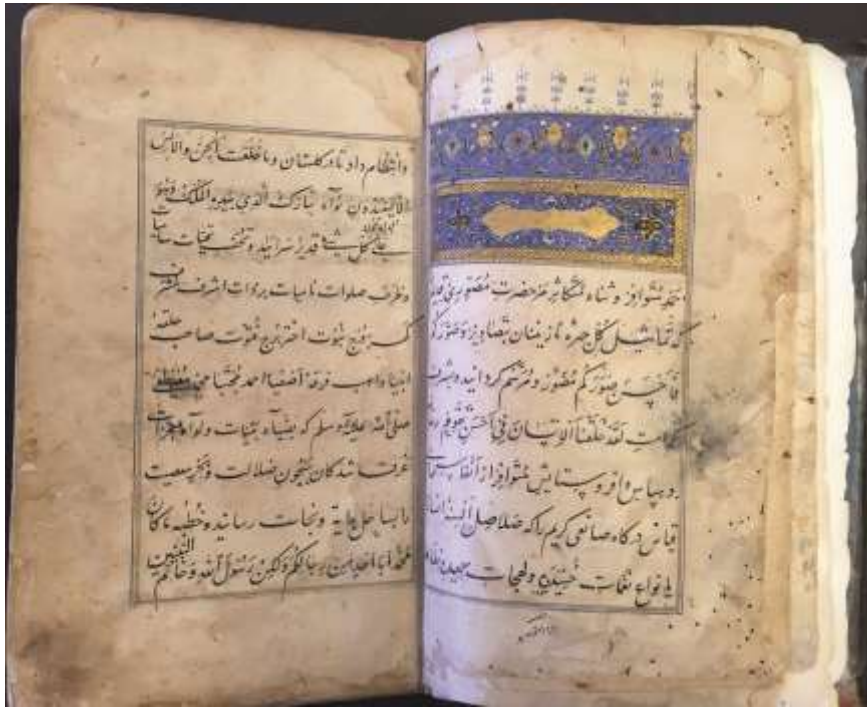 حمد متوافر و ثناء متکاثر مر حضرت مصوری قدیم
که تماثیل کل چهره نازنینان بتصاویر و صورکم
فاحسن صورکم مصور و مرتسم گردانید و بشرف
لقد خلقنا الانسان فی احسن تقویم
و سپاس وافر و ستایش متوافر از انفاس
قیاس درگاه صانعی کریم را که صلاصل السنه
با انواع نغمات و لهجات
وانتظام داد تا در گلستان وما خلقت الجن والانس
الا لیعبدون نوآء تبارک الذی بیده الملک وهو
علی کل شیء قدیر سرایند و تحف تحیات
و ظرف صلوات نامیات بر ذات اشرف
برج نبوت اختر برج فتوت صاحب حلقه
انبیا واهب فرقه اصفیا احمد مجتبا محمد مصطفی
صلی الله علیه وآله وسلم که بضیاء بینات ولوآء معجزات
غرقه شدگان ضلالت و بحر معصیت
را بساحل هدایة و نجات رسانیده و خطبه ما کان
محمد ابا احد من رجالکم ولکن رسول الله وخاتم النبیین